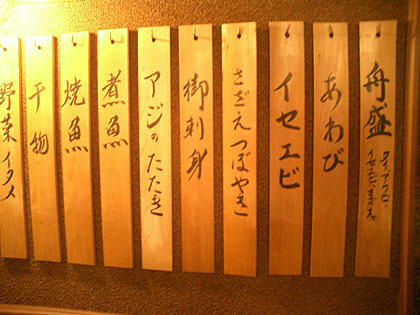 舟盛
タイ、アワビ、
イセエビ、サザエ
あわび
イセエビ
さざえつぼやき
御刺身
アジのたたき
煮魚
焼魚
干物
野菜イタメ